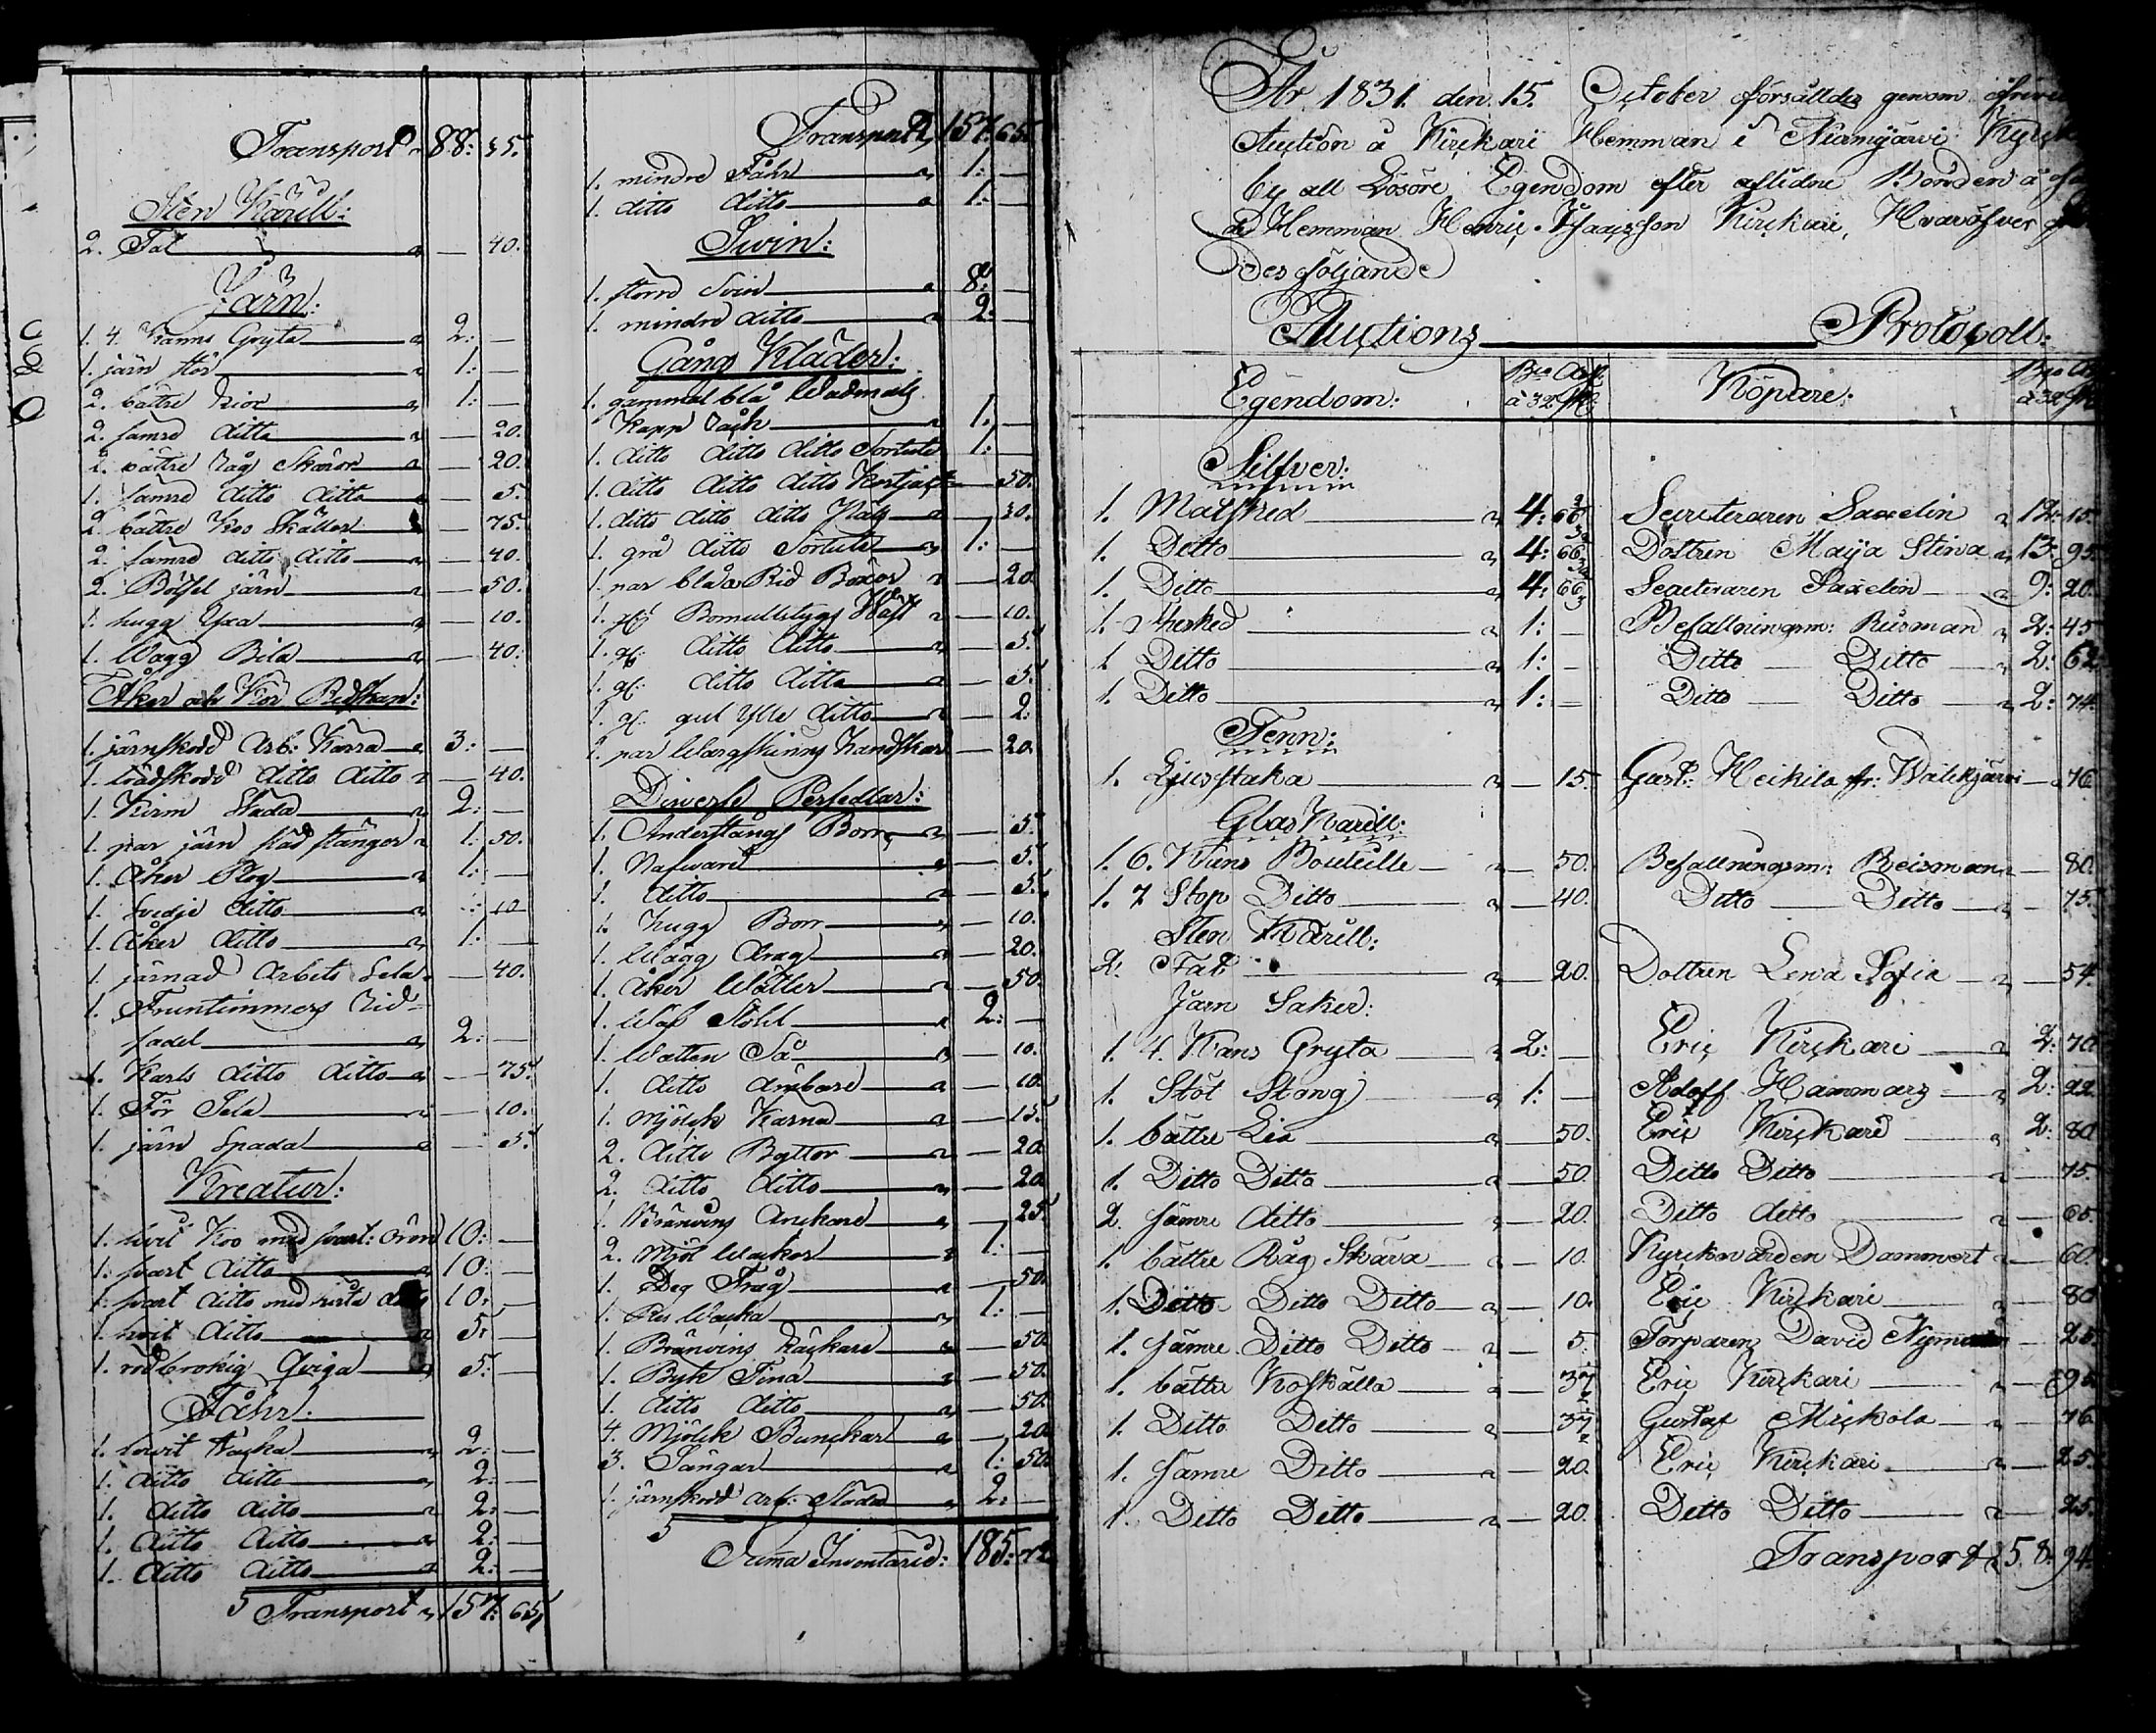 Transport 88: 35.
Sten Kärill:
2. Fat — 40.
Järn:
1. 4. Kanns Gryta 2: —
1. järn stör 1: —
2. bättre lior 1: —
2. sämre ditto — 20.
2. bättre Råg Skäror — 20.
1. sämre ditto ditto — 5.
2. bättre Kos Skällor — 75.
2. sämre ditto ditto — 40.
2. Bötsel järn — 50.
1. hugg Yxa — 10.
1. Wägg Bila — 40.
Åker och Kör Redskap:
1. järnskodd Arb: Kärra 3: —
1. trädskodd ditto ditto — 40.
1. Kurm Släda 2: —
1. par järn skäd stänger 1: 50.
1. Åker Plog 1: —
1. Svedje ditto — 10
1. Åker ditto 1: —
1. järnad Arbets Sela — 40.
1. Fruntimmers Rid-
sadel 2: —
1. Karls ditto ditto — 75.
1. För Sela — 10.
1. järn Spada — 5.
Kreatur:
1. hvit Koo med svart: öron 10: —
1. svart ditto 10: —
1. svart ditto med hvita ditto 10: —
1. hvit ditto 5: —
1. rödbrokig Qviga 5: —
Fåhr:
1. hvit Tacka 2: —
1. ditto ditto 2: —
1. ditto ditto 2: —
1. ditto ditto 2: —
1. ditto ditto 2: —
Transport 157: 65.
Transport 157: 65.
1. mindre Fåhr 1: —
1. ditto ditto 1: —
Swin:
1. större Svin 8: —
1. mindre ditto 2: —
Gång Kläder:
1. gammal blå Wadmals
Kapp Råck 1: —
1. ditto ditto ditto Sortute 1: —
1. ditto ditto ditto Kortjacka — 50.
1. ditto ditto ditto — 30.
1. grå ditto Sortute 1: —
1. par blåa Rid Böxor — 20.
1. gl: Bomullstygs Wäst — 10.
1. gl: ditto ditto — 5.
1. gl: ditto ditto — 5.
1. gl: gul Ylle ditto — 2.
1. par Wargskinns Handskar — 20.
Diverse Persedlar:
1. Anderstångs Borr — 5.
1. Nafware — 5.
1. ditto — 5.
1. hugg Borr — 10.
1. Wägg Drag — 20.
1. Åker Wälter — 50.
1. Wäf Stohl 2: —
1. Watten Så — 10.
1. ditto Ämbare — 10.
1. Mjölck Kärna — 15.
2. ditto Byttor — 20.
2. ditto ditto — 20.
1. Bränvins Anckare — 25.
2. Mjöl Wackor 1: —
1. Deg Tråg — 50.
1. Wacka 1: —
1. Bränvins — 50.
1. Byk Tina — 50.
1. ditto ditto — 50.
4. Mjölck Bunckar — 20.
3. Sängar 1: 50.
1. järnskodd arb: Släda 2: —
Suma Inventarie: 185: 72
År 1831. den 15. October försålldes genom
Auction å Kirckari Hemman i Nurmijärvi Kyrck
by all Lösöre Egendom efter aflidne Bonden å
Hemman Henric Isaacsson Kirckari, Hvaröfver
des följande
Auctions Protocoll:
Egendom: Bco Ass. à 32 Sk: Köpare: Bco à 32
Silfver:
1. Matsked 4: 66 2/3 Secreteraren Saxelin 12: 15.
1. Ditto 4: 66 2/3 Dottren Maija Stina 13: 95.
1. Ditto 4: 66 2/3 Secreteraren Saxelin 9: 20.
1. Thesked 1: — Befallningsm: Reisman 2: 45
1 Ditto 1: — Ditto Ditto 2: 62
1. Ditto 1: — Ditto Ditto 2: 74
Tenn:
1. Ljusstaka — 15. Gust: Heikilä fr: Wälckjärvi — 76.
Glas Kärill:
1. 6. Kans Bouteille — 50. Befallningsm: Reisman — 80.
1. 7 Stop Ditto — 40. Ditto Ditto — 75.
Sten Kärill:
2. Fat — 20. Dottren Lena Sofia — 54.
Järn Saker:
1. 4. Kans Gryta 2: — Eric Kirckari 2: 70
1. Stöt Stong 1: — Adolf Hammarz 2: 22.
1. bättre Lia — 50. Eric Kirckari 2: 80
1. Ditto Ditto — 50. Ditto Ditto — 75.
2. sämre ditto — 20. Ditto ditto — 65.
1. bättre Råg Skära — 10. Kyrckovärden Dammert — 60.
1. Ditto Ditto Ditto — 10. Eric Kirckari — 80
1. sämre Ditto Ditto — 5. Torparen David — 25.
1. bättre Koskälla — 37 1/2 Eric Kirckari — 95
1. Ditto Ditto — 37 1/2 Gustaf Mickola — 76
1. sämre Ditto — 20. Eric Kirckari — 25.
1. Ditto Ditto — 20. Ditto Ditto — 25.
Transport 58: 94.